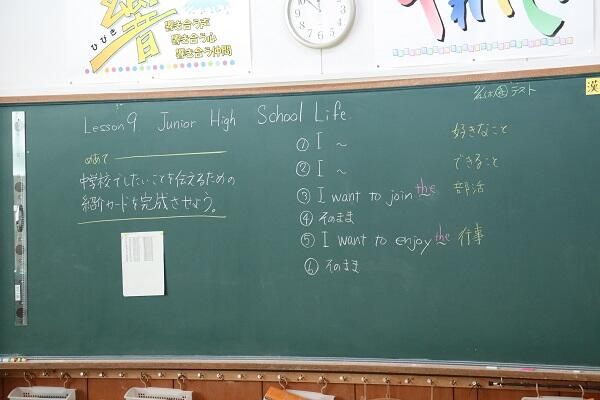 響
ひびき
響き合う声
響き合う心
響き合う仲間
Lesson 9 Junior High School Life.
テスト
漢
めあて
中学校でしたいことを伝えるための
紹介カードを完成させよう。
① I ~ 好きなこと
② I ~ できること
③ I want to join the~ 部活
④ そのまま
⑤ I want to enjoy the~ 行事
⑥ そのまま